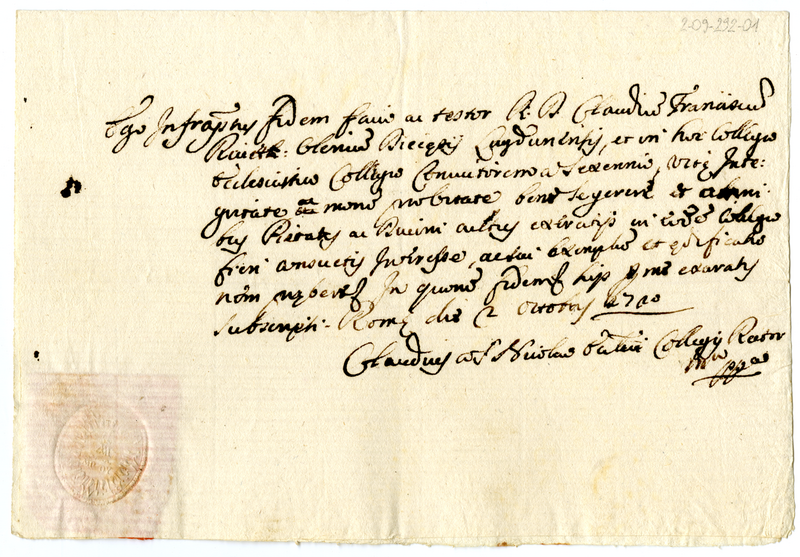 2-09-292-01
Ego Infraptus fidem facio ac testor R. D. Claudium Franciscum
Clericum Diecesis Lugdunensis, et in hoc Collegio
Ecclesiastico Collegio Convictorem a Sexennio, vitę Inte-
gritate ac morum probitate bene se gerere et
bus Pietatis ac Divini cultus exercitijs in Collegio
fieri consuetis Interesse, ac sui exemplum et ędificatio
In quorum fidem his pms exaratis
subscripsi. Romę die 2 Octobris 1700
Claudius a S. Nicolao Collegij Rector